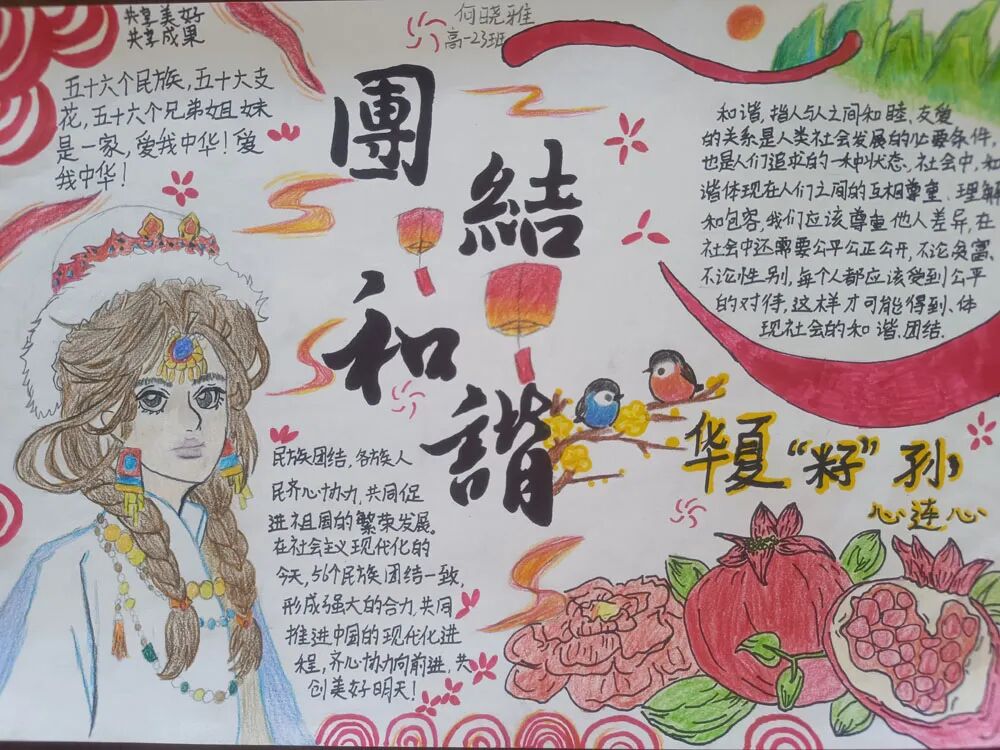 共享美好
共享成果
何晓雅
高一23班
五十六个民族,五十六支
花,五十六个兄弟姐妹
是一家,爱我中华!爱
我中华!
團
結
和
諧
和谐,指人与人之间和睦、友爱
的关系是人类社会发展的必要条件,
也是人们追求的一种状态,社会中,和
谐体现在人们之间的互相尊重、理解
和包容,我们应该尊重他人差异,在
社会中还需要公平公正公开,不论贫富、
不论性别,每个人都应该受到公平
的对待,这样才可能得到、体
现社会的和谐、团结.
民族团结,各族人
民齐心协力,共同促
进祖国的繁荣发展。
在社会主义现代化的
今天,56个民族团结一致,
形成强大的合力,共同
推进中国的现代化进
程,齐心协力向前进,共
创美好明天!
华夏“籽”孙
心连心